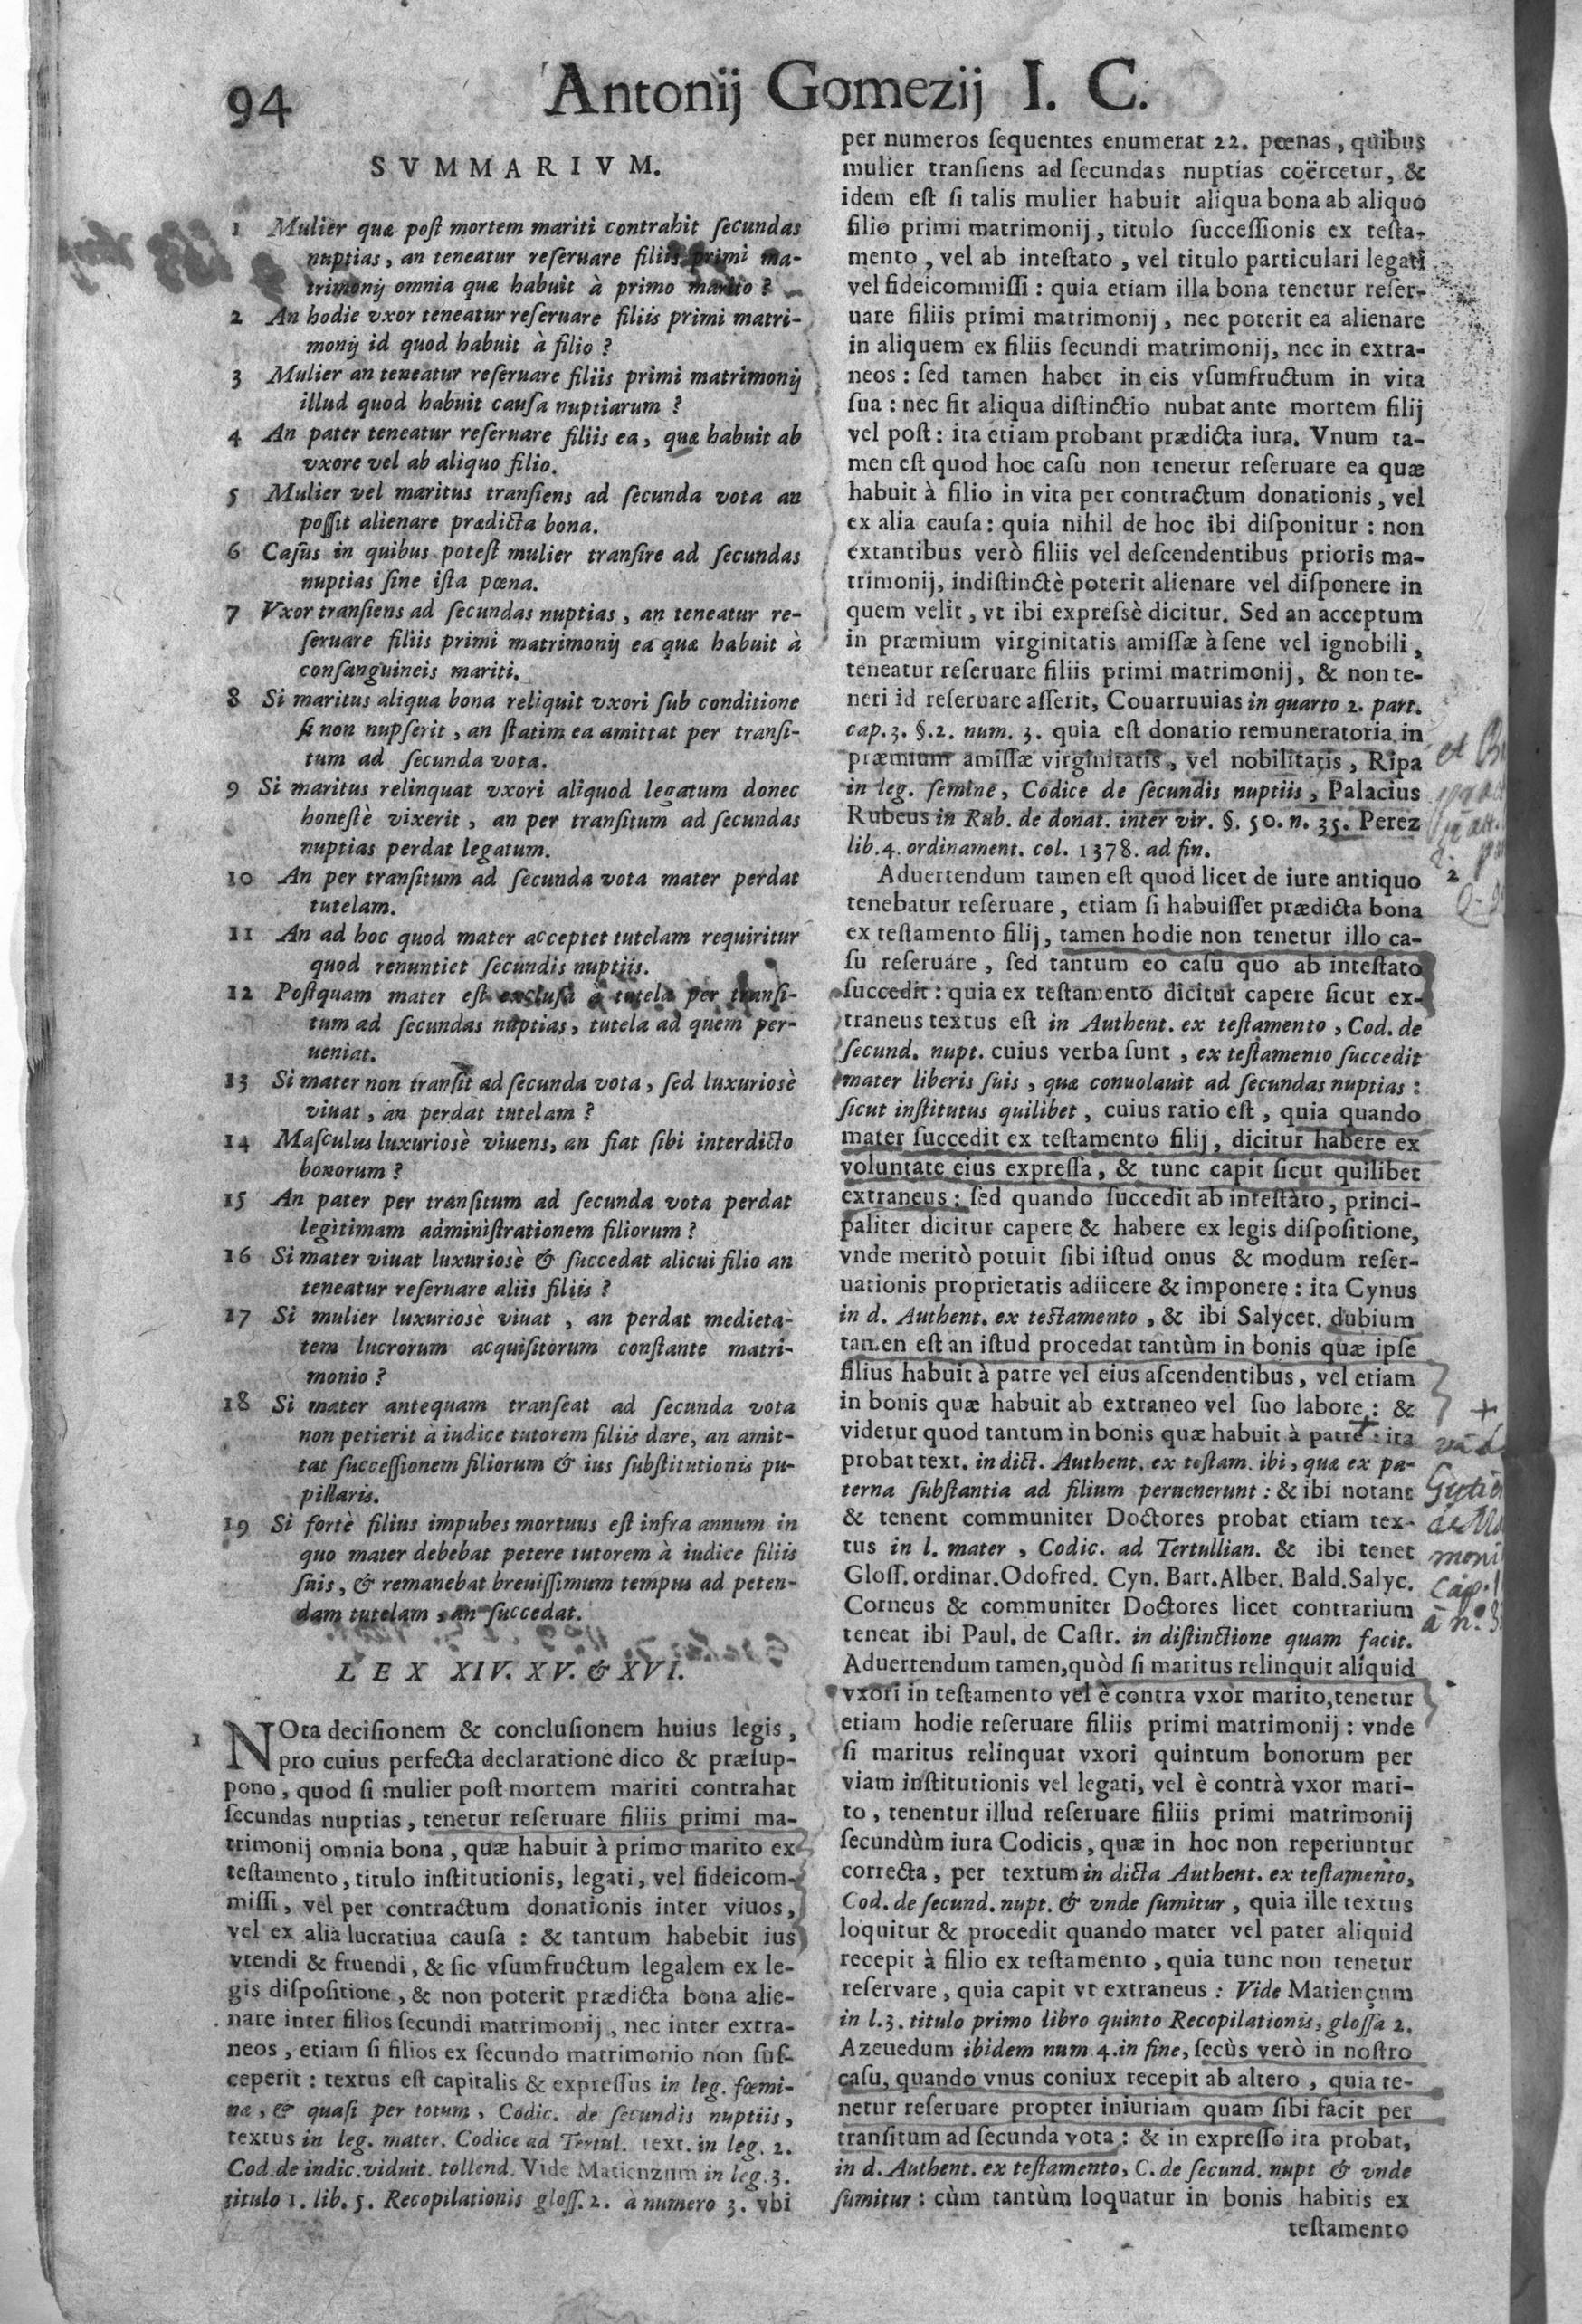 94
Antonij Gomezij I. C.
SVMMARIVM.
1 Mulier quæ poſt mortem mariti contrahit ſecundas
nuptias, an teneatur reſeruare filiis primi ma-
trimonij omnia quæ habuit à primo marito?
2 An hodie vxor teneatur reſeruare filiis primi matri-
monij id quod habuit à filio?
3 Mulier an teneatur reſeruare filiis primi matrimonij
illud quod habuit cauſa nuptiarum?
4 An pater teneatur reſeruare filiis ea, quæ habuit ab
vxore vel ab aliquo filio.
5 Mulier vel maritus tranſiens ad ſecunda vota an
poſſit alienare prædicta bona.
6 Caſus in quibus poteſt mulier tranſire ad ſecundas
nuptias ſine iſta pœna.
7 Vxor tranſiens ad ſecundas nuptias, an teneatur re-
ſeruare filiis primi matrimonij ea quæ habuit à
conſanguineis mariti.
8 Si maritus aliqua bona reliquit vxori ſub conditione
ſi non nupſerit, an ſtatim ea amittat per tranſi-
tum ad ſecunda vota.
9 Si maritus relinquat vxori aliquod legatum donec
honeſtè vixerit, an per tranſitum ad ſecundas
nuptias perdat legatum.
10 An per tranſitum ad ſecunda vota mater perdat
tutelam.
11 An ad hoc quod mater acceptet tutelam requiritur
quod renuntiet ſecundis nuptiis.
12 Poſtquam mater eſt excluſa à tutela per tranſi-
tum ad ſecundas nuptias, tutela ad quem per-
ueniat.
13 Si mater non tranſit ad ſecunda vota, ſed luxurioſè
viuat, an perdat tutelam?
14 Maſculus luxurioſè viuens, an fiat ſibi interdicto
bonorum?
15 An pater per tranſitum ad ſecunda vota perdat
legitimam adminiſtrationem filiorum?
16 Si mater viuat luxurioſè & ſuccedat alicui filio an
teneatur reſeruare aliis filiis?
17 Si mulier luxurioſè viuat, an perdat medieta-
tem lucrorum acquiſitorum conſtante matri-
monio?
18 Si mater antequam tranſeat ad ſecunda vota
non petierit à iudice tutorem filiis dare, an amit-
tat ſucceſſionem filiorum & ius ſubſtitutionis pu-
pillaris.
19 Si fortè filius impubes mortuus eſt infra annum in
quo mater debebat petere tutorem à iudice filiis
ſuis, & remanebat breuiſſimum tempus ad peten-
dam tutelam, an ſuccedat.
LEX XIV. XV. & XVI.
1 NOta deciſionem & concluſionem huius legis,
pro cuius perfecta declaratione dico & præſup-
pono, quod ſi mulier poſt mortem mariti contrahat
ſecundas nuptias, tenetur reſeruare filiis primi ma-
trimonij omnia bona, quæ habuit à primo marito ex
teſtamento, titulo inſtitutionis, legati, vel fideicom-
miſſi, vel per contractum donationis inter viuos,
vel ex alia lucratiua cauſa : & tantum habebit ius
vtendi & fruendi, & ſic vſumfructum legalem ex le-
gis diſpoſitione, & non poterit prædicta bona alie-
nare inter filios ſecundi matrimonij, nec inter extra-
neos, etiam ſi filios ex ſecundo matrimonio non ſuſ-
ceperit : textus eſt capitalis & expreſſus in leg. fœmi-
næ, & quaſi per totum, Codic. de ſecundis nuptiis,
textus in leg. mater. Codice ad Tertul. text. in leg. 2.
Cod. de indic. viduit. tollend. Vide Matienzum in leg. 3.
titulo 1. lib. 5. Recopilationis gloſſ. 2. à numero 3. vbi
per numeros ſequentes enumerat 22. pœnas, quibus
mulier tranſiens ad ſecundas nuptias coërcetur, &
idem eſt ſi talis mulier habuit aliqua bona ab aliquo
filio primi matrimonij, titulo ſucceſſionis ex teſta-
mento, vel ab inteſtato, vel titulo particulari legati
vel fideicommiſſi : quia etiam illa bona tenetur reſer-
uare filiis primi matrimonij, nec poterit ea alienare
in aliquem ex filiis ſecundi matrimonij, nec in extra-
neos : ſed tamen habet in eis vſumfructum in vita
ſua : nec fit aliqua diſtinctio nubat ante mortem filij
vel poſt : ita etiam probant prædicta iura. Vnum ta-
men eſt quod hoc caſu non tenetur reſeruare ea quæ
habuit à filio in vita per contractum donationis, vel
ex alia cauſa : quia nihil de hoc ibi diſponitur : non
extantibus verò filiis vel deſcendentibus prioris ma-
trimonij, indiſtinctè poterit alienare vel diſponere in
quem velit, vt ibi expreſſè dicitur. Sed an acceptum
in præmium virginitatis amiſſæ à ſene vel ignobili,
teneatur reſeruare filiis primi matrimonij, & non te-
neri id reſeruare aſſerit, Couarruuias in quarto 2. part.
cap. 3. §. 2. num. 3. quia eſt donatio remuneratoria in
præmium amiſſæ virginitatis, vel nobilitatis, Ripa
in leg. femine, Codice de ſecundis nuptiis, Palacius
Rubeus in Rub. de donat. inter vir. §. 50. n. 35. Perez
lib. 4. ordinament. col. 1378. ad fin.
Aduertendum tamen eſt quod licet de iure antiquo 2
tenebatur reſeruare, etiam ſi habuiſſet prædicta bona
ex teſtamento filij, tamen hodie non tenetur illo ca-
ſu reſeruare, ſed tantum eo caſu quo ab inteſtato
ſuccedit : quia ex teſtamento dicitur capere ſicut ex-
traneus textus eſt in Authent. ex teſtamento, Cod. de
ſecund. nupt. cuius verba ſunt, ex teſtamento ſuccedit
mater liberis ſuis, quæ conuolauit ad ſecundas nuptias :
ſicut inſtitutus quilibet, cuius ratio eſt, quia quando
mater ſuccedit ex teſtamento filij, dicitur habere ex
voluntate eius expreſſa, & tunc capit ſicut quilibet
extraneus : ſed quando ſuccedit ab inteſtato, princi-
paliter dicitur capere & habere ex legis diſpoſitione,
vnde meritò potuit ſibi iſtud onus & modum reſer-
uationis proprietatis adiicere & imponere : ita Cynus
in d. Authent. ex teſtamento, & ibi Salycet. dubium
tamen eſt an iſtud procedat tantùm in bonis quæ ipſe
filius habuit à patre vel eius aſcendentibus, vel etiam
in bonis quæ habuit ab extraneo vel ſuo labore : &
videtur quod tantum in bonis quæ habuit à patre : ita
probat text. in dict. Authent. ex teſtam. ibi, quæ ex pa-
terna ſubſtantia ad filium peruenerunt : & ibi notant
& tenent communiter Doctores probat etiam tex-
tus in l. mater, Codic. ad Tertullian. & ibi tenet
Gloſſ. ordinar. Odofred. Cyn. Bart. Alber. Bald. Salyc.
Corneus & communiter Doctores licet contrarium
teneat ibi Paul. de Caſtr. in diſtinctione quam facit.
Aduertendum tamen, quòd ſi maritus relinquit aliquid
vxori in teſtamento vel è contra vxor marito, tenetur
etiam hodie reſeruare filiis primi matrimonij : vnde
ſi maritus relinquat vxori quintum bonorum per
viam inſtitutionis vel legati, vel è contrà vxor mari-
to, tenentur illud reſeruare filiis primi matrimonij
ſecundùm iura Codicis, quæ in hoc non reperiuntur
correcta, per textum in dicta Authent. ex teſtamento,
Cod. de ſecund. nupt. & vnde ſumitur, quia ille textus
loquitur & procedit quando mater vel pater aliquid
recepit à filio ex teſtamento, quia tunc non tenetur
reſervare, quia capit vt extraneus : Vide Matiençum
in l. 3. titulo primo libro quinto Recopilationis, gloſſa 2.
Azeuedum ibidem num 4. in fine, ſecùs verò in noſtro
caſu, quando vnus coniux recepit ab altero, quia te-
netur reſeruare propter iniuriam quam ſibi facit per
tranſitum ad ſecunda vota : & in expreſſo ita probat,
in d. Authent. ex teſtamento, C. de ſecund. nupt & vnde
ſumitur : cùm tantùm loquatur in bonis habitis ex
teſtamento